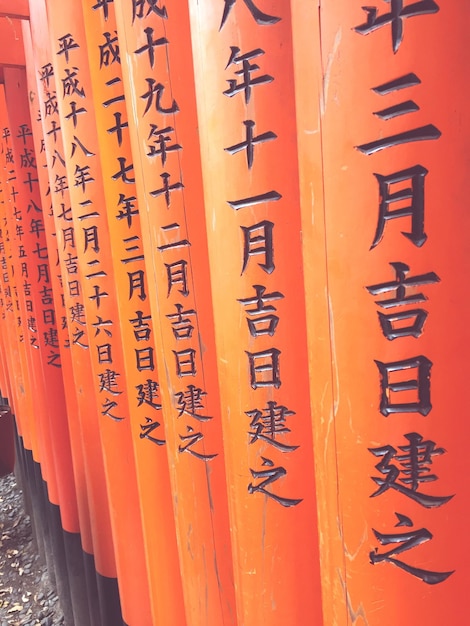 年三月吉日建之
八年十一月吉日建之
成十九年十二月吉日建之
成二十七年三月吉日建之
平成十八年二月二十六日建之
平成十八年七月吉日建之
平成十八年七月吉日建之
年五月吉日建之